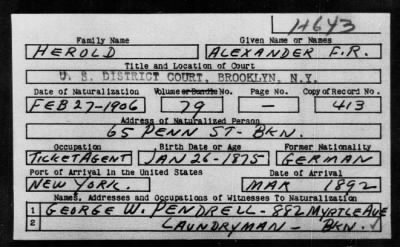 H643
Family Name Given Name or Names
HEROLD ALEXANDER F.R.
Title and Location of Court
U. S. DISTRICT COURT, BROOKLYN, N.Y.
Date of Naturalization Volume or Bundle No. Page No. Copy of Record No.
FEB 27-1906 79 — 413
Address of Naturalized Person
65 PENN ST- BKN.
Occupation Birth Date or Age Former Nationality
TICKET AGENT JAN 26-1875 GERMAN
Port of Arrival in the United States Date of Arrival
NEW YORK. MAR 1892
Names, Addresses and Occupations of Witnesses To Naturalization
1 GEORGE W. PENDRELL - 882 MYRTLE AVE
2 LAUNDRYMAN - BKN.